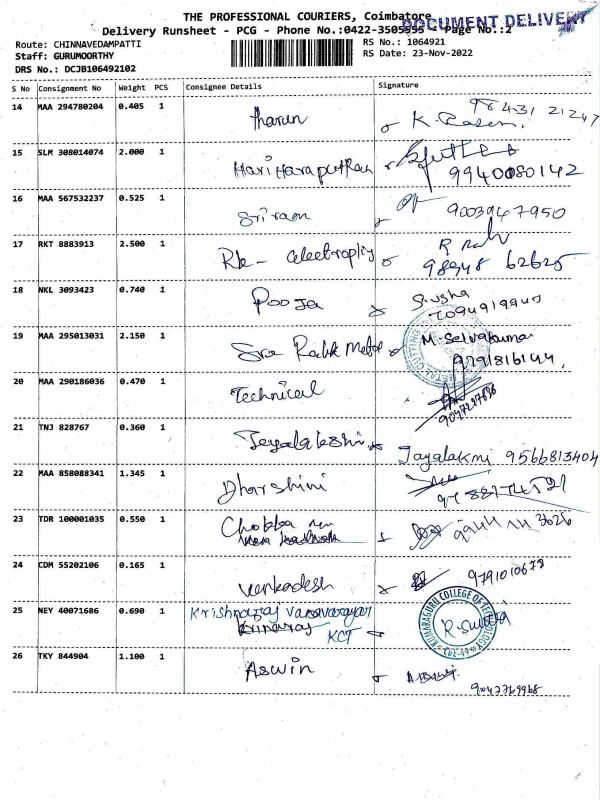 THE PROFESSIONAL COURIERS, Coimbatore
DOCUMENT DELIVERY
Delivery Runsheet - PCG - Phone No.:0422-3505555 - Page No.:2
Route: CHINNAVEDAMPATTI
RS No.: 1064921
Staff: GURUMOORTHY
RS Date: 23-Nov-2022
DRS No.: DCJB106492102
S No Consignment No Weight PCS Consignee Details Signature
14 MAA 294780204 0.405 1 Tharun K. 98431 21247
15 SLM 308014074 2.000 1 Hariharaputhran 9940080142
16 MAA 567532237 0.525 1 Sriram 9003947950
17 RKT 8883913 2.500 1 Rk- R 98948 62625
18 NKL 3093423 0.740 1 Pooja S. Usha
19 MAA 295013031 2.150 1 Sree M. Selvakumar
METAL CUTTING
20 MAA 290186036 0.470 1 Technical
21 TNJ 828767 0.360 1 Jeyalakshmi Jayalakmi 9566813404
22 MAA 858088341 1.345 1 Dharshini
23 TDR 100001035 0.550 1
24 CDM 55202106 0.165 1 Venkadesh 9791010678
25 NEY 40071686 0.690 1 Krishnaraj Vanavarayar
KCT
KUMARAGURU COLLEGE OF TECHNOLOGY
26 TKY 844904 1.100 1 Aswin